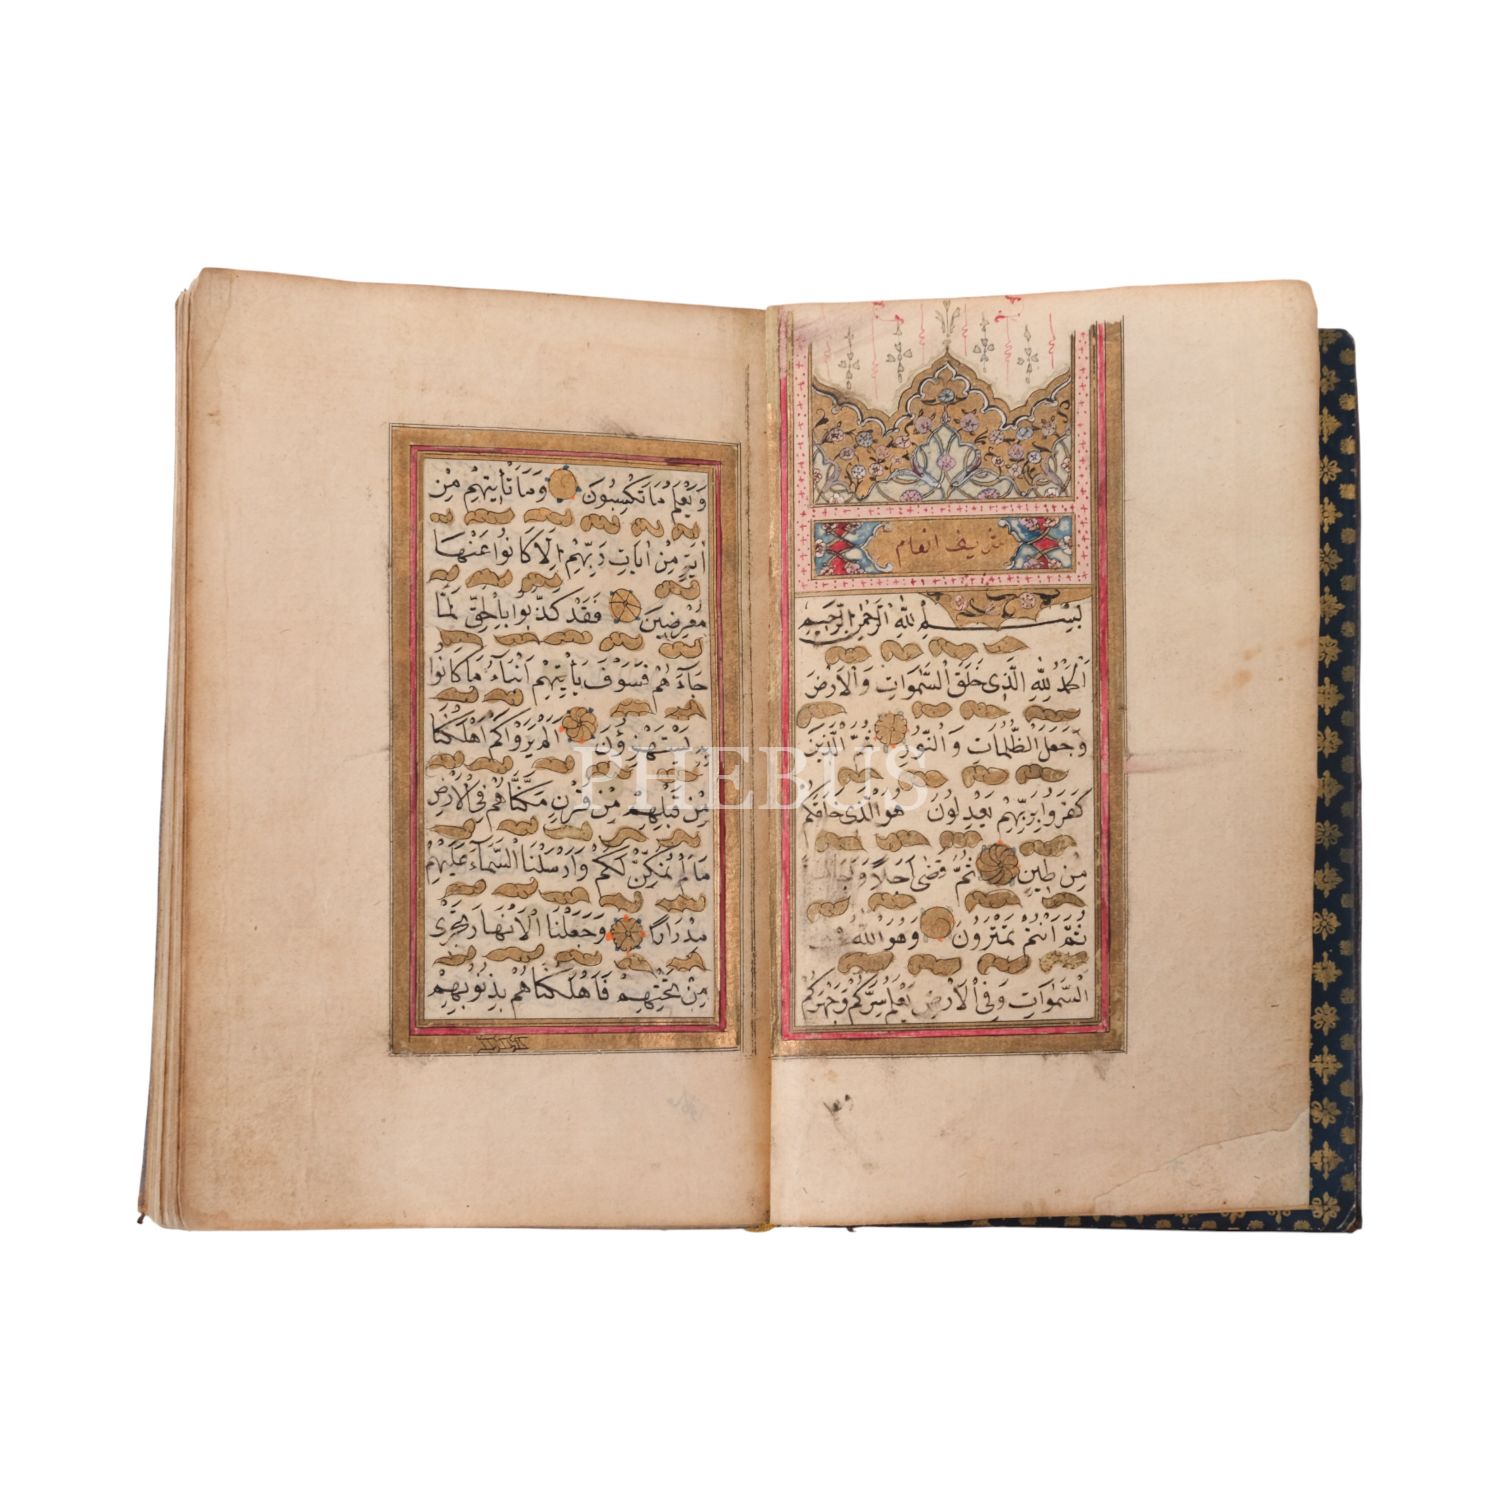 شريف انعام
بِسْمِ اللهِ الرَّحْمٰنِ الرَّحِيمِ
اَلْحَمْدُ لِلّٰهِ الَّذِى خَلَقَ السَّمٰوَاتِ وَالْاَرْضَ
وَجَعَلَ الظُّلُمَاتِ وَالنُّورَ ثُمَّ الَّذِينَ
كَفَرُوا بِرَبِّهِمْ يَعْدِلُونَ هُوَ الَّذِى خَلَقَكُمْ
مِنْ طِينٍ ثُمَّ قَضٰى اَجَلًا وَاَجَلٌ
ثُمَّ اَنْتُمْ تَمْتَرُونَ وَهُوَ اللهُ فِى
السَّمٰوَاتِ وَفِى الْاَرْضِ يَعْلَمُ سِرَّكُمْ وَجَهْرَكُمْ
وَيَعْلَمُ مَا تَكْسِبُونَ وَمَا تَأْتِيهِمْ مِنْ
اٰيَةٍ مِنْ اٰيَاتِ رَبِّهِمْ اِلَّا كَانُوا عَنْهَا
مُعْرِضِينَ فَقَدْ كَذَّبُوا بِالْحَقِّ لَمَّا
جَاءَهُمْ فَسَوْفَ يَأْتِيهِمْ اَنْبَاءُ مَا كَانُوا
بِهِ يَسْتَهْزِؤُنَ اَلَمْ يَرَوْا كَمْ اَهْلَكْنَا
مِنْ قَبْلِهِمْ مِنْ قَرْنٍ مَكَّنَّاهُمْ فِى الْاَرْضِ
مَا لَمْ نُمَكِّنْ لَكُمْ وَاَرْسَلْنَا السَّمَاءَ عَلَيْهِمْ
مِدْرَارًا وَجَعَلْنَا الْاَنْهَارَ تَجْرِى
مِنْ تَحْتِهِمْ فَاَهْلَكْنَاهُمْ بِذُنُوبِهِمْ
PHEBUS